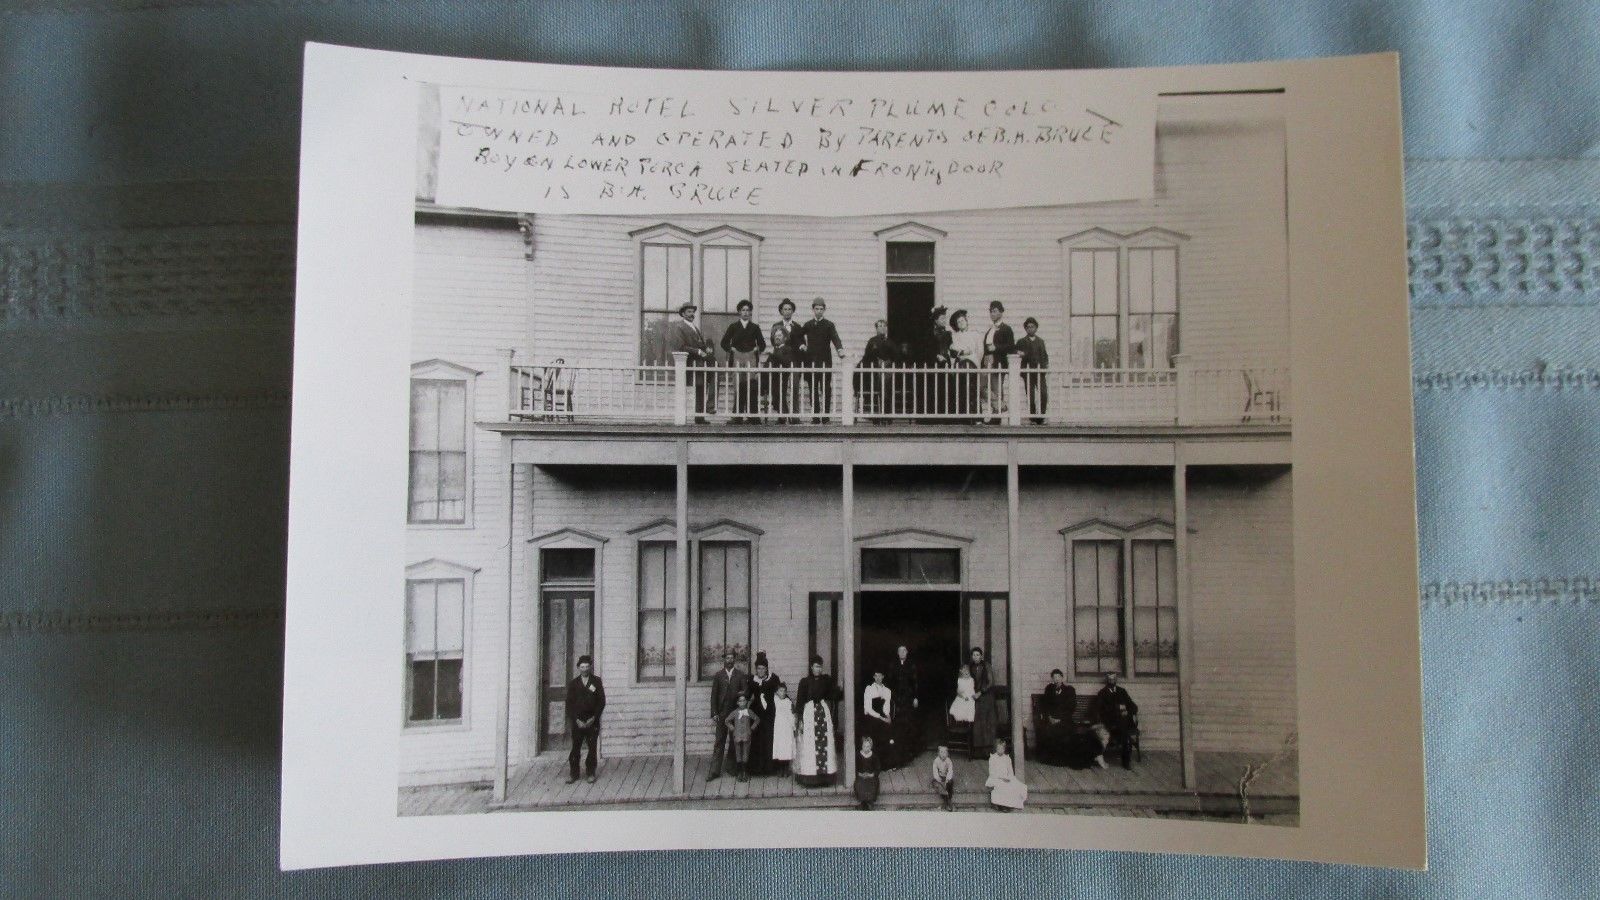 NATIONAL HOTEL SILVER PLUME COLO
OWNED AND OPERATED BY PARENTS OF B.H. BRUCE
BOY ON LOWER PORCH SEATED IN FRONT of DOOR
IS B.H. BRUCE